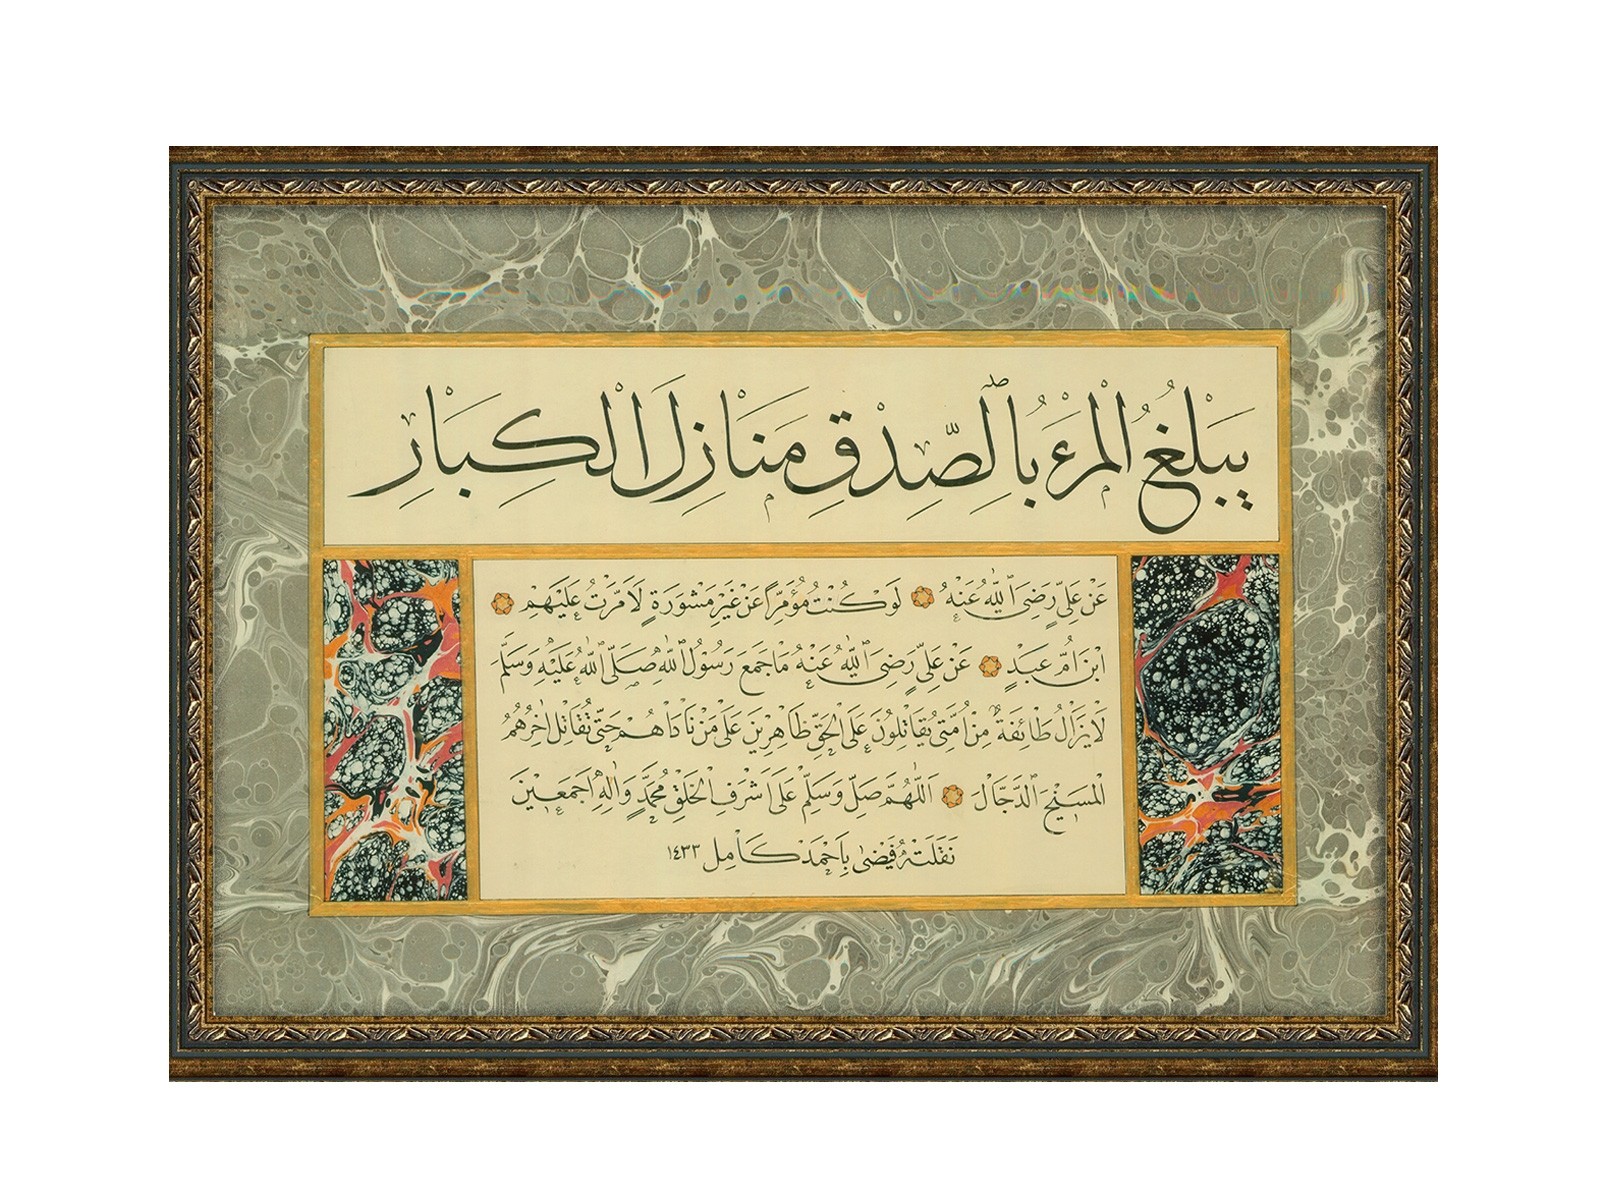 يَبْلُغُ الْمَرْءُ بِالصِّدْقِ مَنَازِلَ الْكِبَارِ
عَنْ عَلِيٍّ رَضِيَ اللّٰهُ عَنْهُ لَوْ كُنْتُ مُؤَمِّرًا عَنْ غَيْرِ مَشْوَرَةٍ لَأَمَّرْتُ عَلَيْهِمْ
ابْنَ اُمِّ عَبْدٍ عَنْ عَلِيٍّ رَضِيَ اللّٰهُ عَنْهُ مَا جَمَعَ رَسُولُ اللّٰهِ صَلَّى اللّٰهُ عَلَيْهِ وَسَلَّمَ
لَا يَزَالُ طَائِفَةٌ مِنْ اُمَّتِي يُقَاتِلُونَ عَلَى الْحَقِّ ظَاهِرِينَ عَلَى مَنْ نَادَاهُمْ حَتَّى تُقَاتِلَ اٰخِرُهُمُ
الْمَسِيحَ الدَّجَّالَ اَللّٰهُمَّ صَلِّ وَسَلِّمْ عَلَى اَشْرَفِ الْخَلْقِ مُحَمَّدٍ وَاٰلِهِ اَجْمَعِينَ
بِاَحْمَدَ كَامِل ١٤٣٣